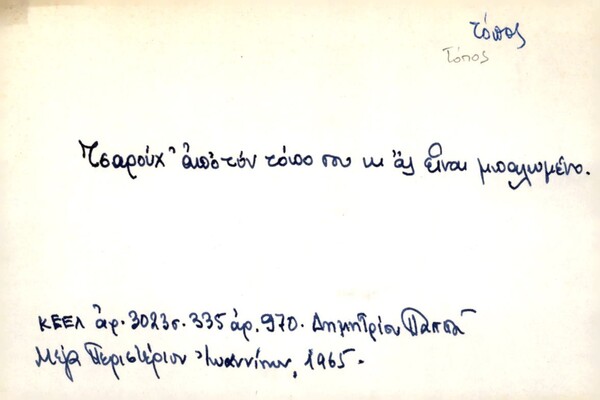 τόπος
Τόπος
Τσαρούχ' ἀπὸ τὸν τόπο σου κι ἄς εἶναι μπαλωμένο.
ΚΕΕΛ ἀρ. 3023 σ. 335 ἀρ. 970. Δημητρίου Παππᾶ
Μέγα Περιστέριον Ἰωαννίνων, 1965.